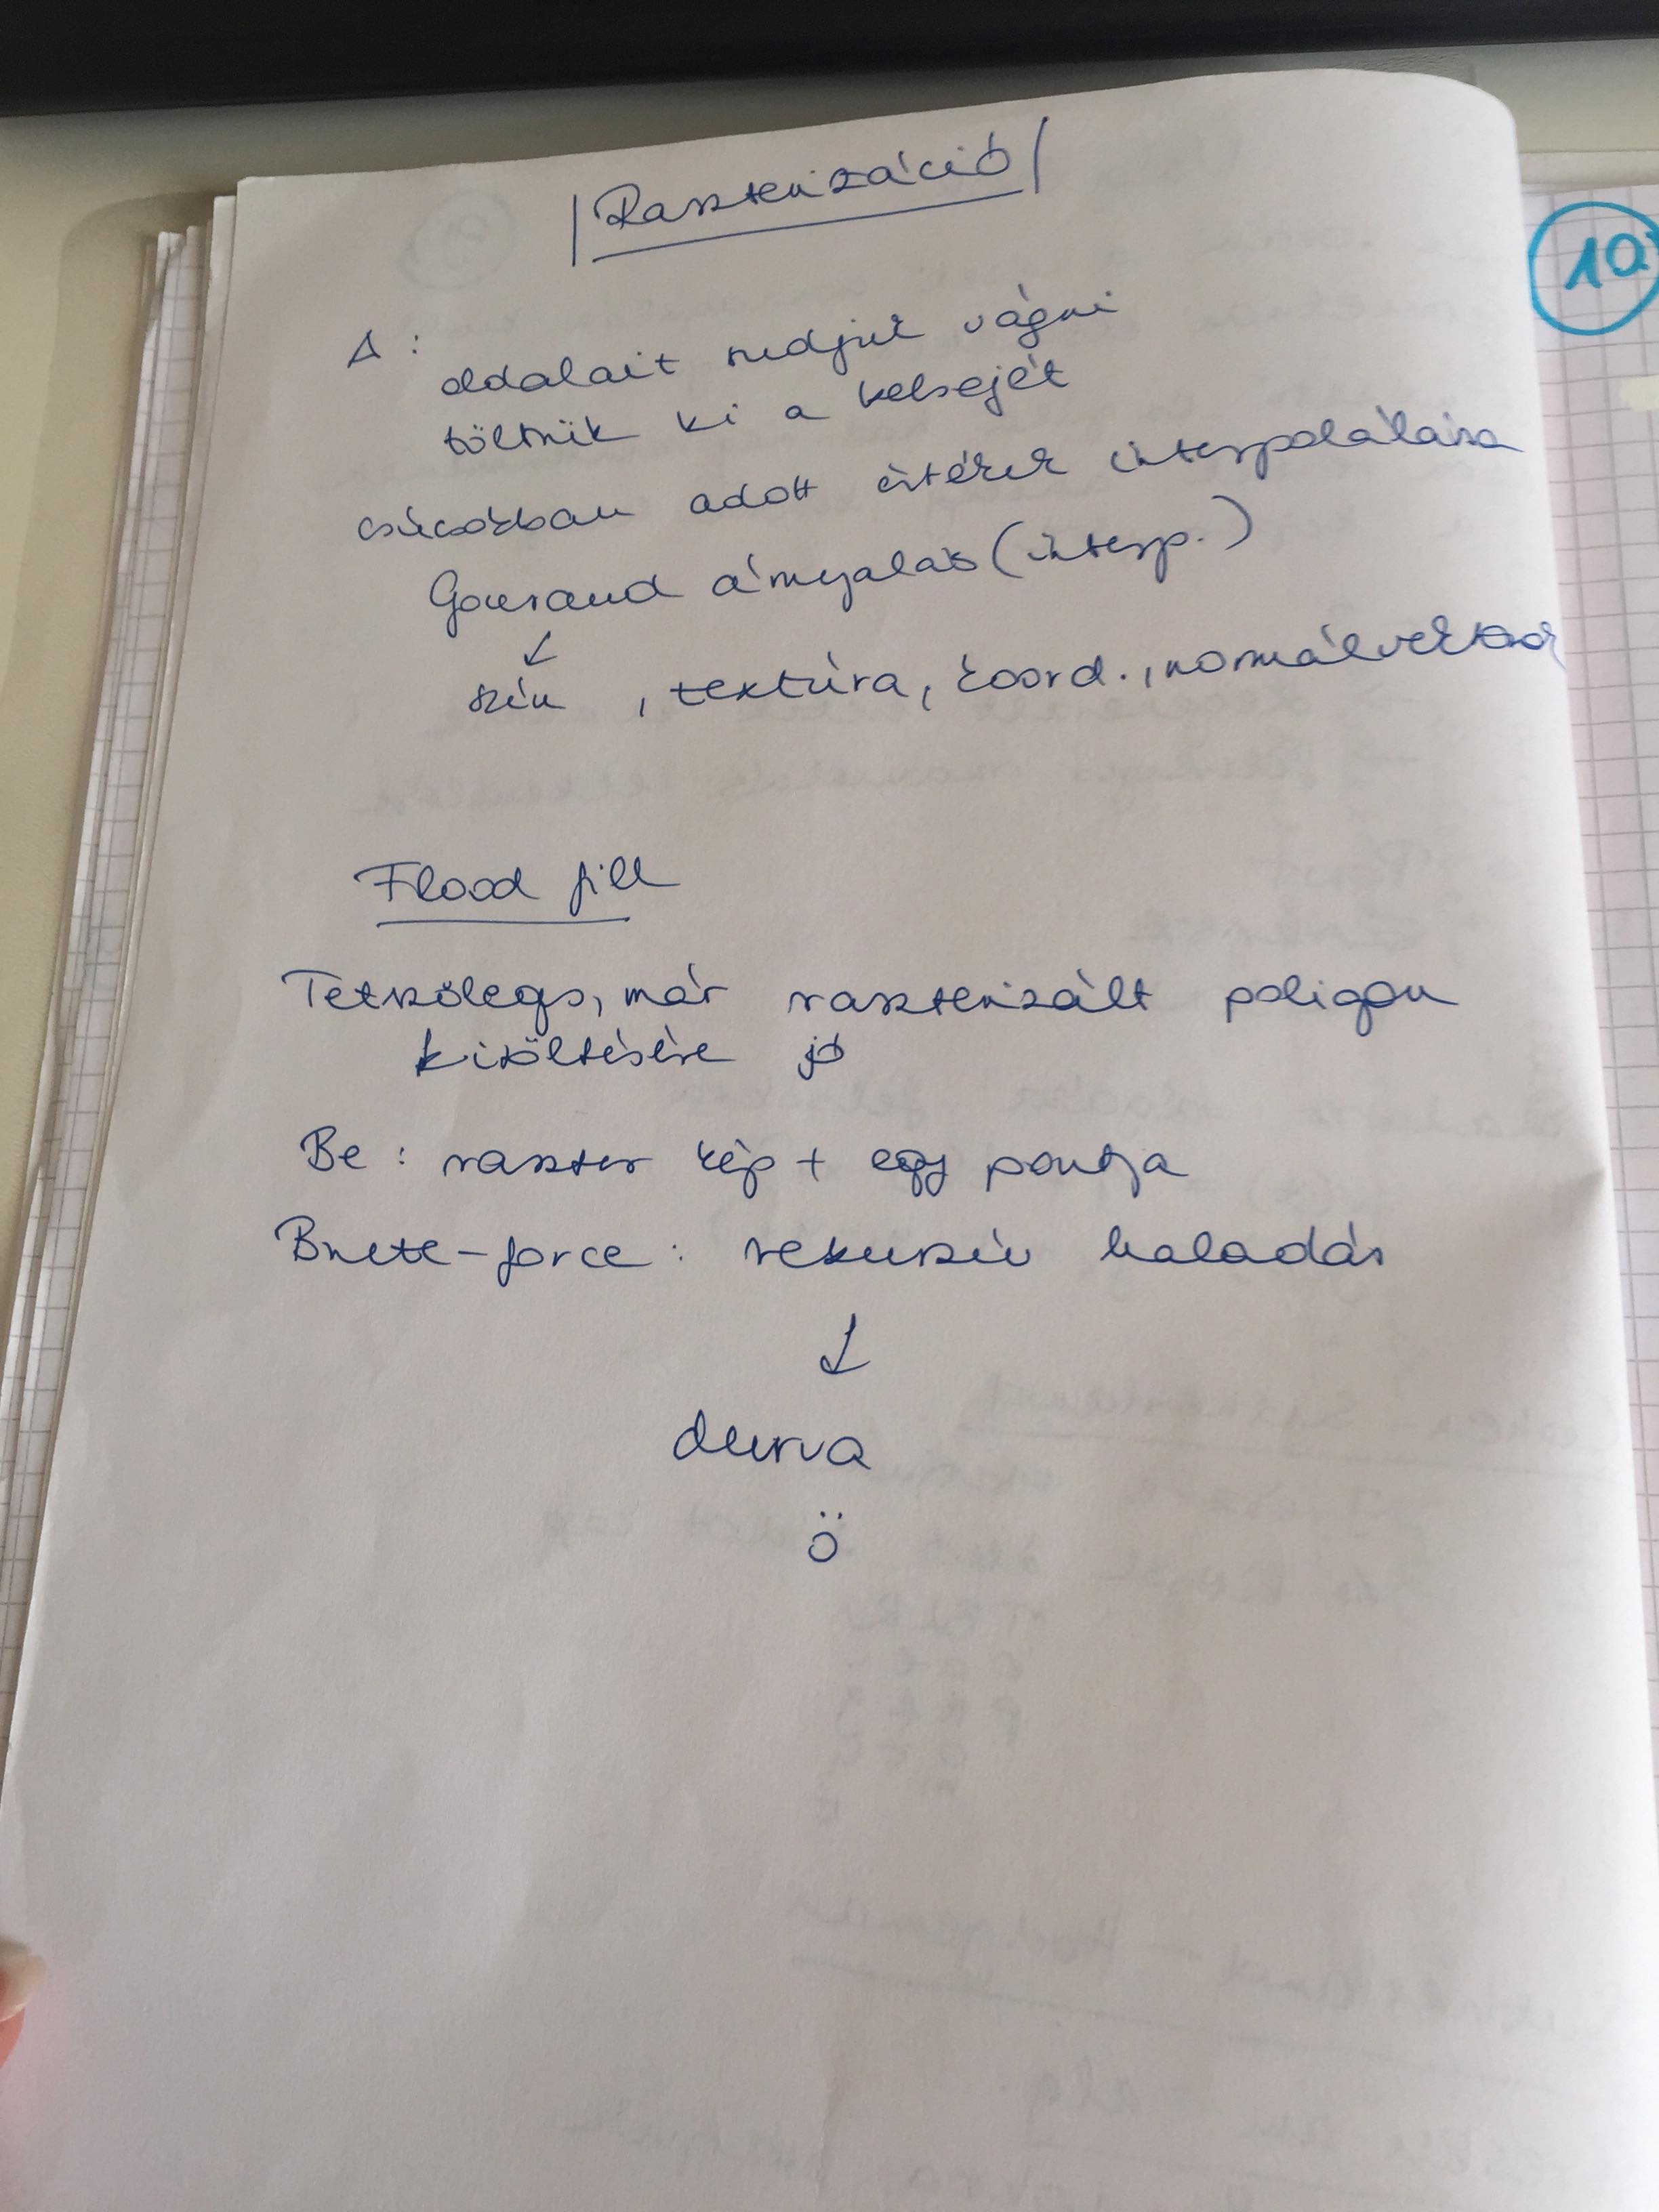 |Raszterizáció|
10
Δ:
oldalait tudjuk vágni
töltsük ki a belsejét
csúcsokban adott értékek interpolálása
Gouraud árnyalás (interp.)
↙
szín , textúra, koord., normálvektor
Flood fill
Tetszőleges, már raszterizált poligon
kitöltésére jó
Be: raszter kép + egy pontja
Brute-force: rekurzív haladás
↓
durva
ö